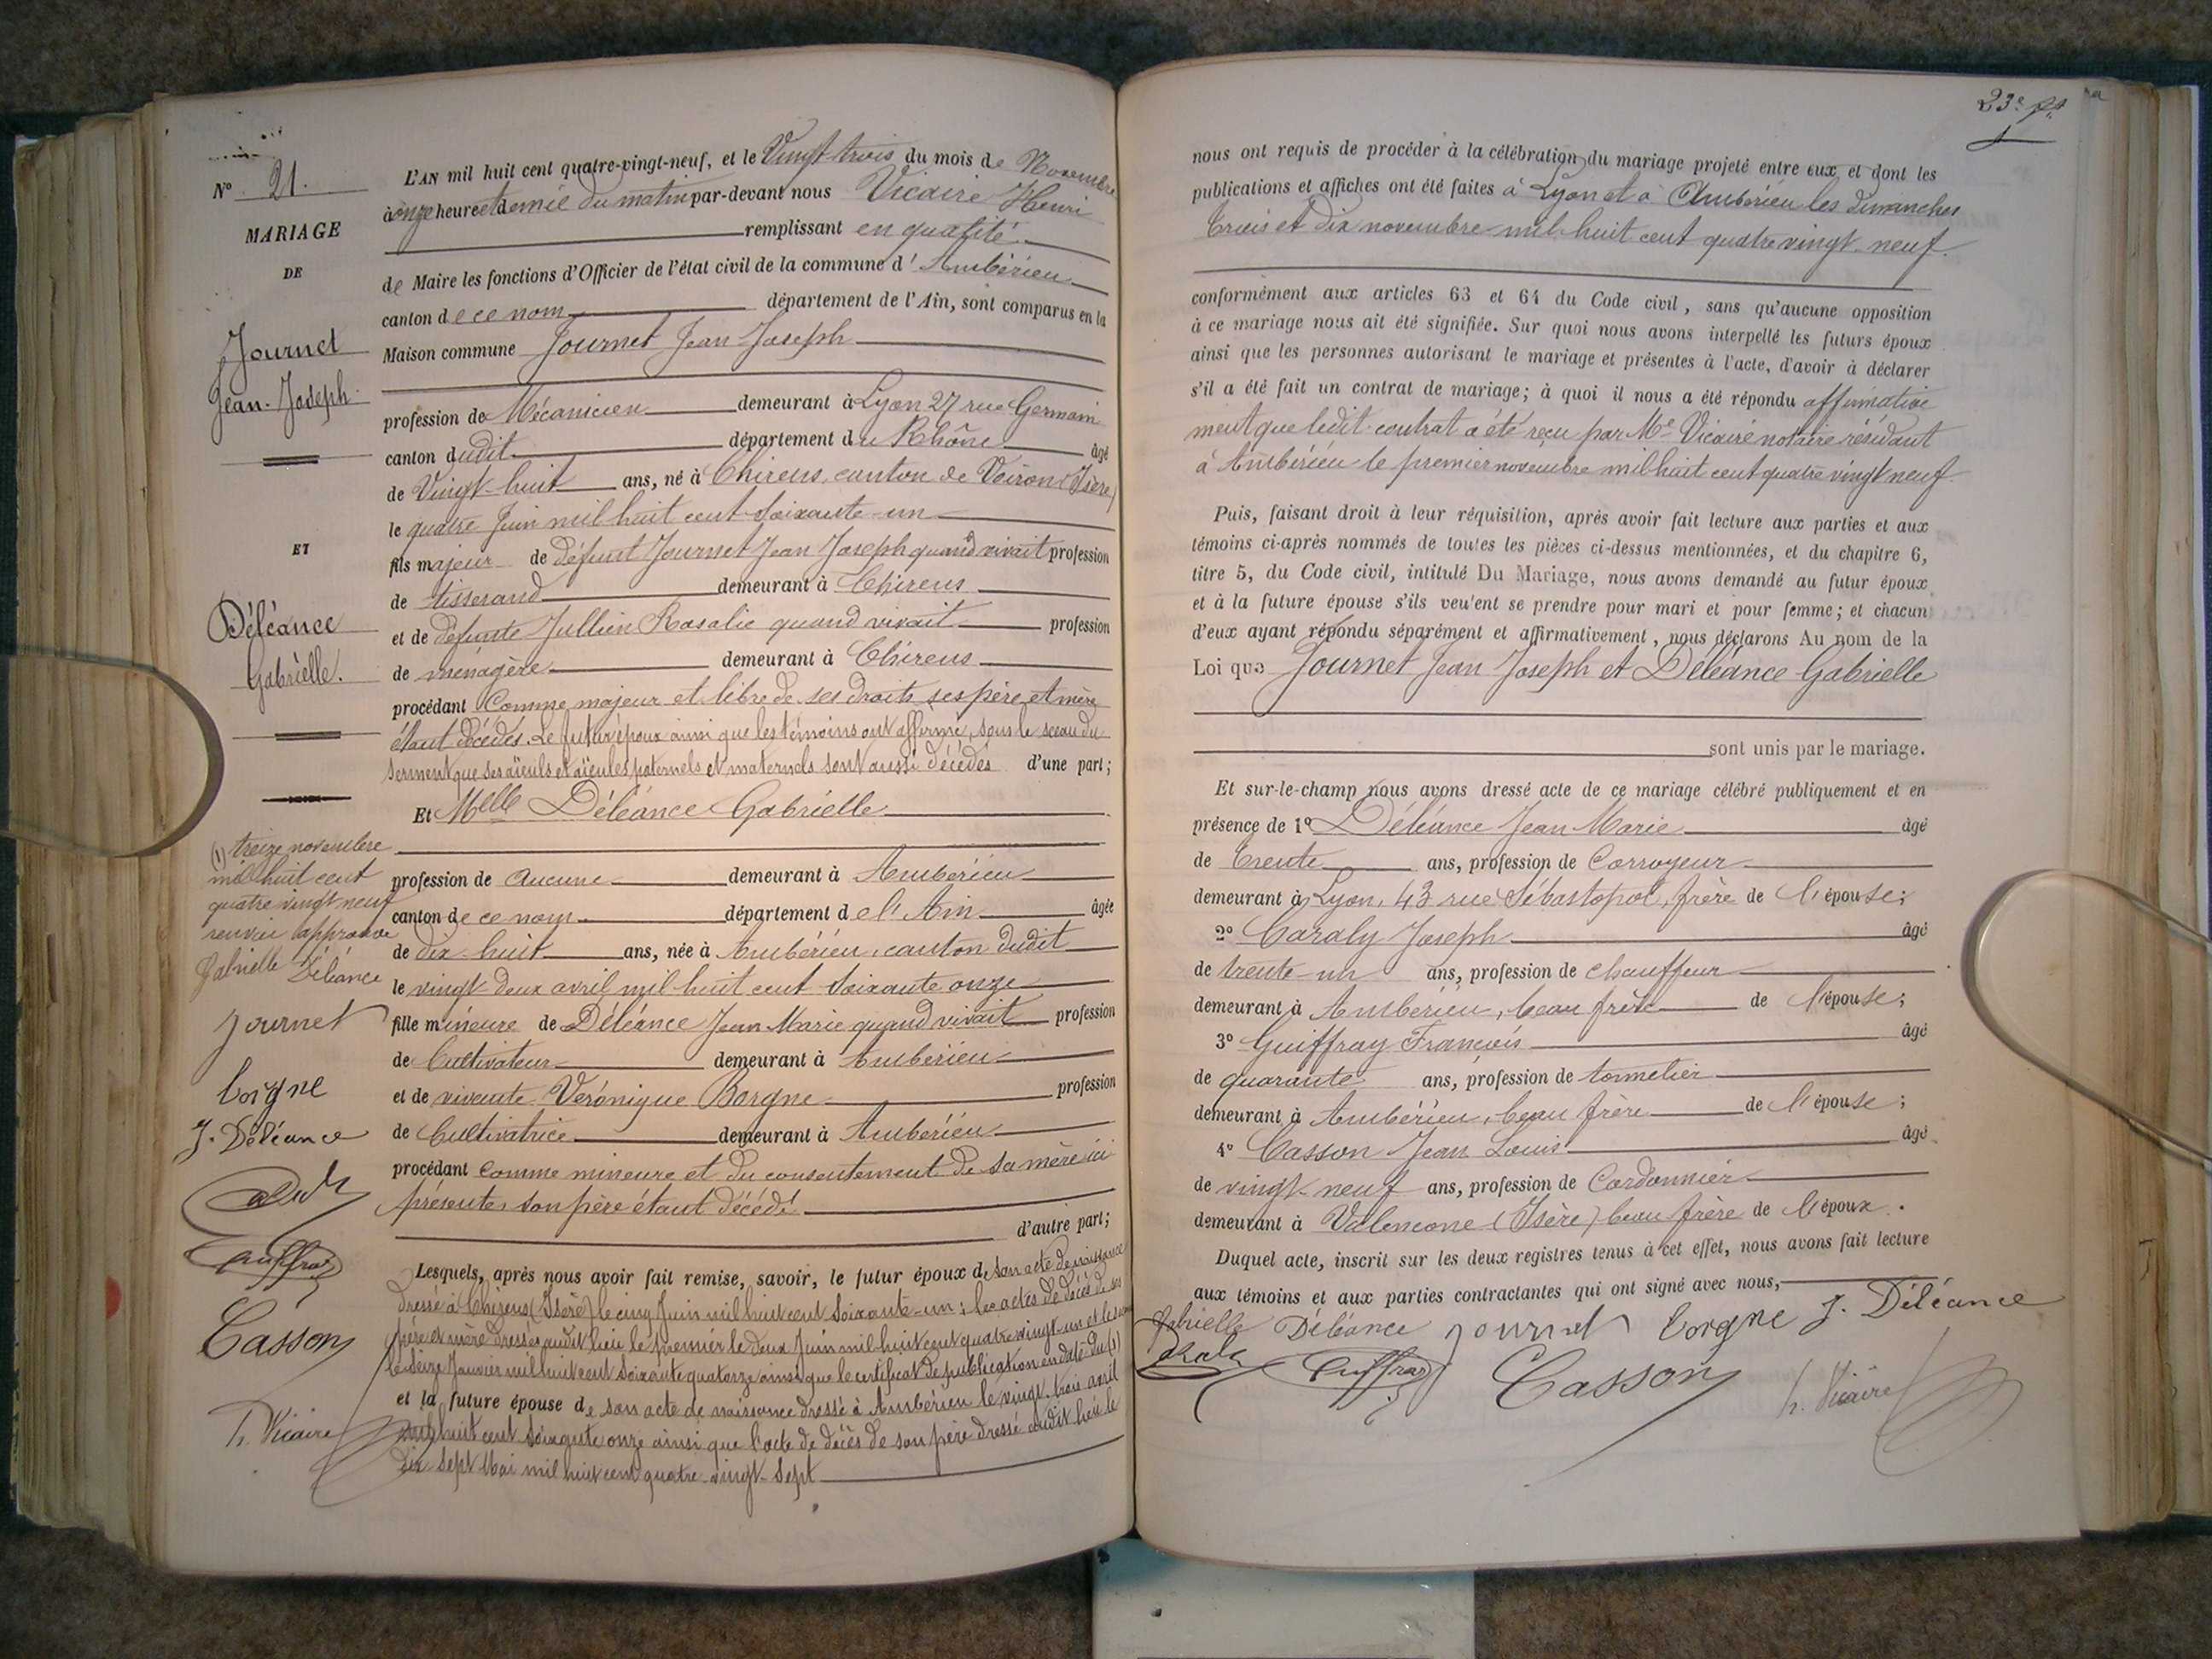 N° 21.
MARIAGE
DE
Journet
Jean-Joseph
ET
Déléance
Gabrielle.
(1) treize novembre
mil huit cent
quatre vingt neuf
renvoi approuvé
Gabrielle Déléance
Journet
borgne
J. Déléance
Casson
h. Vicaire
L'AN mil huit cent quatre-vingt-neuf, et le Vingt trois du mois de Novembre
à onze heure et demie du matin par-devant nous Vicaire Henri
remplissant en qualité
de Maire les fonctions d'Officier de l'état civil de la commune d'Ambérieu
canton de ce nom département de l'Ain, sont comparus en la
Maison commune Journet Jean Joseph
profession de Mécanicien demeurant à Lyon 27 rue Germain
canton dudit département du Rhône âgé
de Vingt-huit ans, né à Chirens, canton de Voiron (Isère)
le quatre Juin mil huit cent soixante-un
fils majeur de défunt Journet Jean Joseph quand vivait profession
de tisserand demeurant à Chirens
et de défunte Jullien Rosalie quand vivait profession
de ménagère demeurant à Chirens
procédant Comme majeur et libre de ses droits ses père et mère
étant décédés. Le futur époux ainsi que les témoins ont affirmé, sous le sceau du
serment que ses aïeuls et aïeules paternels et maternels sont aussi décédés d'une part;
Et Melle Déléance Gabrielle
profession de aucune demeurant à Ambérieu
canton de ce nom département de l'Ain âgée
de dix-huit ans, née à Ambérieu, canton dudit
le vingt-deux avril mil huit cent soixante onze
fille mineure de Déléance Jean Marie quand vivait profession
de Cultivateur demeurant à Ambérieu
et de vivante Véronique Borgne profession
de Cultivatrice demeurant à Ambérieu
procédant comme mineure et du consentement de sa mère ici
présente, son père étant décédé
d'autre part;
Lesquels, après nous avoir fait remise, savoir, le futur époux de son acte de naissance
dressé à Chirens (Isère) le cinq Juin mil huit cent soixante-un; les actes de décès de ses
père et mère dressés audit lieu le premier le deux Juin mil huit cent quatre vingt-un et le second
le seize Janvier mil huit cent soixante quatorze ainsi que le certificat de publication en date du (1)
et la future épouse de son acte de naissance dressé à Ambérieu le vingt-trois avril
mil huit cent soixante onze ainsi que l'acte de décès de son père dressé audit lieu le
dix sept Mai mil huit cent quatre-vingt-sept
23e
nous ont requis de procéder à la célébration du mariage projeté entre eux et dont les
publications et affiches ont été faites à Lyon et à Ambérieu les dimanches
trois et dix novembre mil huit cent quatre vingt-neuf.
conformément aux articles 63 et 64 du Code civil, sans qu'aucune opposition
à ce mariage nous ait été signifiée. Sur quoi nous avons interpellé les futurs époux
ainsi que les personnes autorisant le mariage et présentes à l'acte, d'avoir à déclarer
s'il a été fait un contrat de mariage; à quoi il nous a été répondu affirmative
ment que ledit contrat a été reçu par Me Vicaire notaire résidant
à Ambérieu le premier novembre mil huit cent quatre vingt neuf.
Puis, faisant droit à leur réquisition, après avoir fait lecture aux parties et aux
témoins ci-après nommés de toutes les pièces ci-dessus mentionnées, et du chapitre 6,
titre 5, du Code civil, intitulé Du Mariage, nous avons demandé au futur époux
et à la future épouse s'ils veulent se prendre pour mari et pour femme; et chacun
d'eux ayant répondu séparément et affirmativement, nous déclarons Au nom de la
Loi que Journet Jean Joseph et Déléance Gabrielle
sont unis par le mariage.
Et sur-le-champ nous avons dressé acte de ce mariage célébré publiquement et en
présence de 1° Déléance Jean Marie âgé
de trente ans, profession de Corroyeur
demeurant à Lyon, 43 rue Sébastopol, frère de l'épouse;
2° Caraly Joseph âgé
de trente-un ans, profession de chauffeur
demeurant à Ambérieu, beau frère de l'épouse;
3° Guiffray François âgé
de quarante ans, profession de tonnelier
demeurant à Ambérieu, beau frère de l'épouse;
4° Casson Jean Louis âgé
de vingt-neuf ans, profession de Cordonnier
demeurant à Valencone (Isère) beau frère de l'époux.
Duquel acte, inscrit sur les deux registres tenus à cet effet, nous avons fait lecture
aux témoins et aux parties contractantes qui ont signé avec nous,
Gabrielle Déléance Journet borgne J. Déléance
Guiffray Casson h. Vicaire